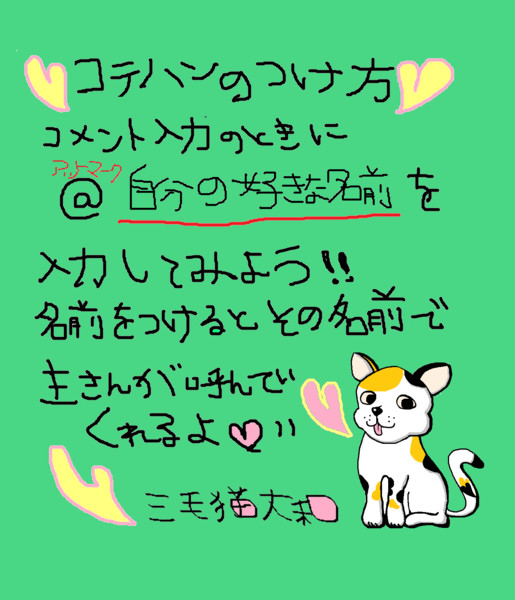 コテハンのつけ方
コメント入力のときに
アットマーク
@自分の好きな名前を
入力してみよう!!
名前をつけるとその名前で
主さんが呼んで
くれるよ
三毛猫大